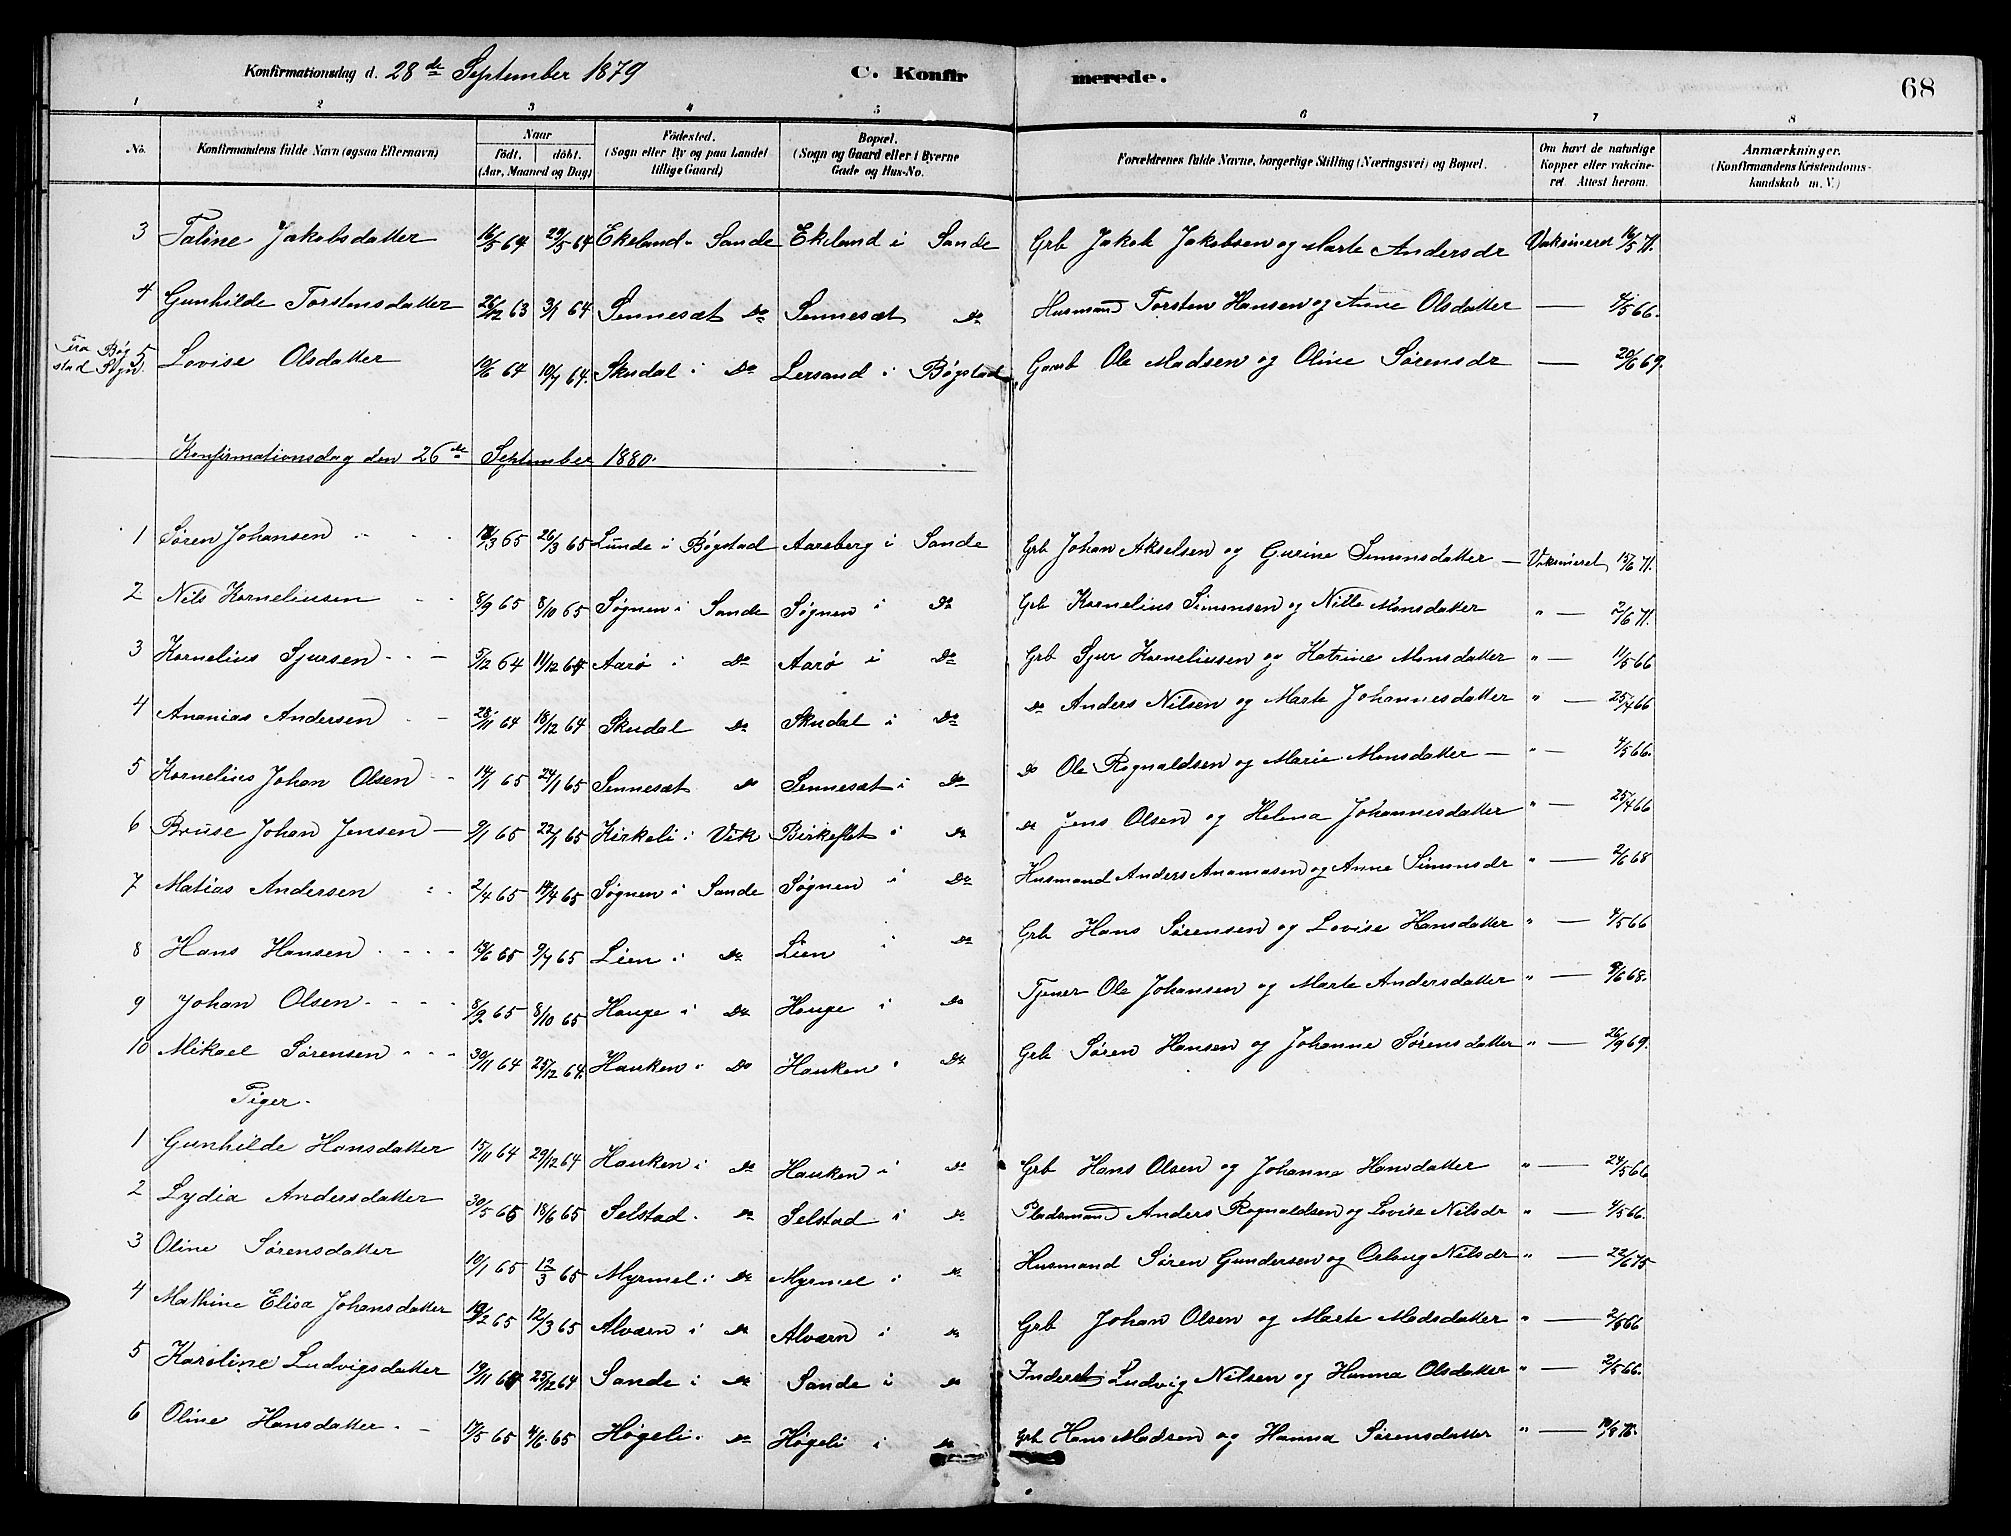 Konfirmationsdag d. 28de September 1879 C. Konfir merede. 68
1 2 3 4 5 6 7 8
No. Konfirmandens fulde Navn (ogsaa Efternavn) Naar födt. döbt. (Aar, Maaned og Dag) Födested. (Sogn eller By og paa Landet tillige Gaard) Bopæl. (Sogn og Gaard eller i Byerne Gade og Hus-No. Forældrenes fulde Navne, borgerlige Stilling (Næringsvei) og Bopæl. Om havt de naturlige Kopper eller vakcineret. Attest herom. Anmærkninger. (Konfirmandens Kristendomskundskab m. V.)
3 Taline Jakobsdatter 16/5 64 29/5 64 Ekeland Sande Ekeland i Sande Grb Jakob Jakobsen og Marte Andersdr Vaksineret 16/5 71.
4 Gunhilde Torstensdatter 26/12 63 3/1 64 Sennesæt Do Sennesæt Do Husmand Torsten Hansen og Anne Olsdatter — 4/5 66.
Fra Bøgstad Sogn. 5 Lovise Olsdatter 19/6 64 10/7 64. Skudal i Do Lersand i Bøgstad Gaarb Ole Madsen og Oline Sørensdr — 20/6 69.
Konfirmationsdag den 26de September 1880.
1 Søren Johansen 65 26/3 65 Lunde i Bøgstad Aarsberg i Sande Grb Johan Akselsen og Gurine Simonsdatter — Vaksineret 15/6 71.
2 Nils Korneliusen 8/9 65 8/10 65 Søgnen i Sande Søgnen i Do Grb Kornelius Simonsen og Nille Monsdatter " — 2/6 71.
3 Kornelius Sjursen 5/12 64 11/12 64 Aarø i Do Aarø i Do Grb Sjur Korneliusen og Katrine Monsdatter " — 11/5 66
4 Ananias Andersen 28/11 64 18/12 64 Skudal Do Skudal i Do Do Anders Nilsen og Marte Johannesdatter " — 25/4 66
5 Kornelius Johan Olsen 14/1 65 24/1 65 Sennesæt Do Sennesæt i Do Do Ole Rognaldsen og Marie Monsdatter — " — 4/5 66.
6 Bruse Johan Jensen — 9/1 65 22/1 65 Kirkeli i Vik Birkeflet i Do Do Jens Olsen og Helena Johannesdatter " — 25/4 66
7 Matias Andersen 2/4 65 14/4 65 Søgnen i Sande Søgnen i Do Husmand Anders Ananiasen og Anne Simonsdr " — 2/6 68
8 Hans Hansen 13/6 65 9/7 65 Lien i Do Lien i Do Grb Hans Sørensen og Lovise Hansdatter " — 4/5 66
9 Johan Olsen 8/9 65 8/10 65 Hauge i Do Hauge i Do Tjener Ole Johansen og Marte Andersdatter " — 9/6 68.
10 Mikael Sørensen 30/11 64 25/12 64. Hauken i Do Hauken i Do Grb Søren Hansen og Johanne Sørensdatter " — 26/9 69.
Piger.
1 Gunhilde Hansdatter 15/11 64 29/12 64 Hauken i Do Hauken i Do Grb Hans Olsen og Johanna Hansdatter " — 24/5 66
2 Lydia Andersdatter 30/5 65 18/6 65 Selstad Do Selstad i Do Pladsmand Anders Rognaldsen og Lovise Nilsdr " — 4/5 66.
3 Oline Sørensdatter 10/1 65 12/3 65 Myrmel i Do Myrmel i Do Husmand Søren Gundersen og Oslaug Nilsdr " — 22/6 75
4 Mathine Elisa Johansdatter 19/2 65 12/3 65 Alværn i Do Alværn i Do Grb Johan Olsen og Marte Madsdatter " — 2/5 66
5 Karoline Ludvigsdatter 19/11 64 25/12 64 Sande i Do Sande i Do Inderst Ludvig Nilsen og Hanna Olsdatter " — 2/5 66.
6 Oline Hansdatter 17/5 65 4/6 65 Høgeli Do Høgeli i Do Grb Hans Madsen og Hanna Sørensdatter " —